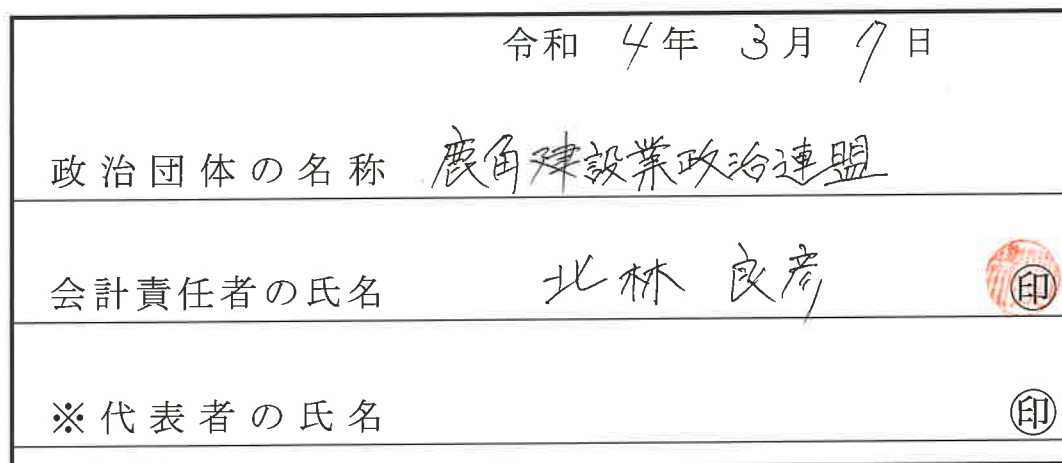 令和 4年 3月 7日
政治団体の名称 鹿角建設業政治連盟
会計責任者の氏名 北林 良彦 ㊞
※代表者の氏名 ㊞